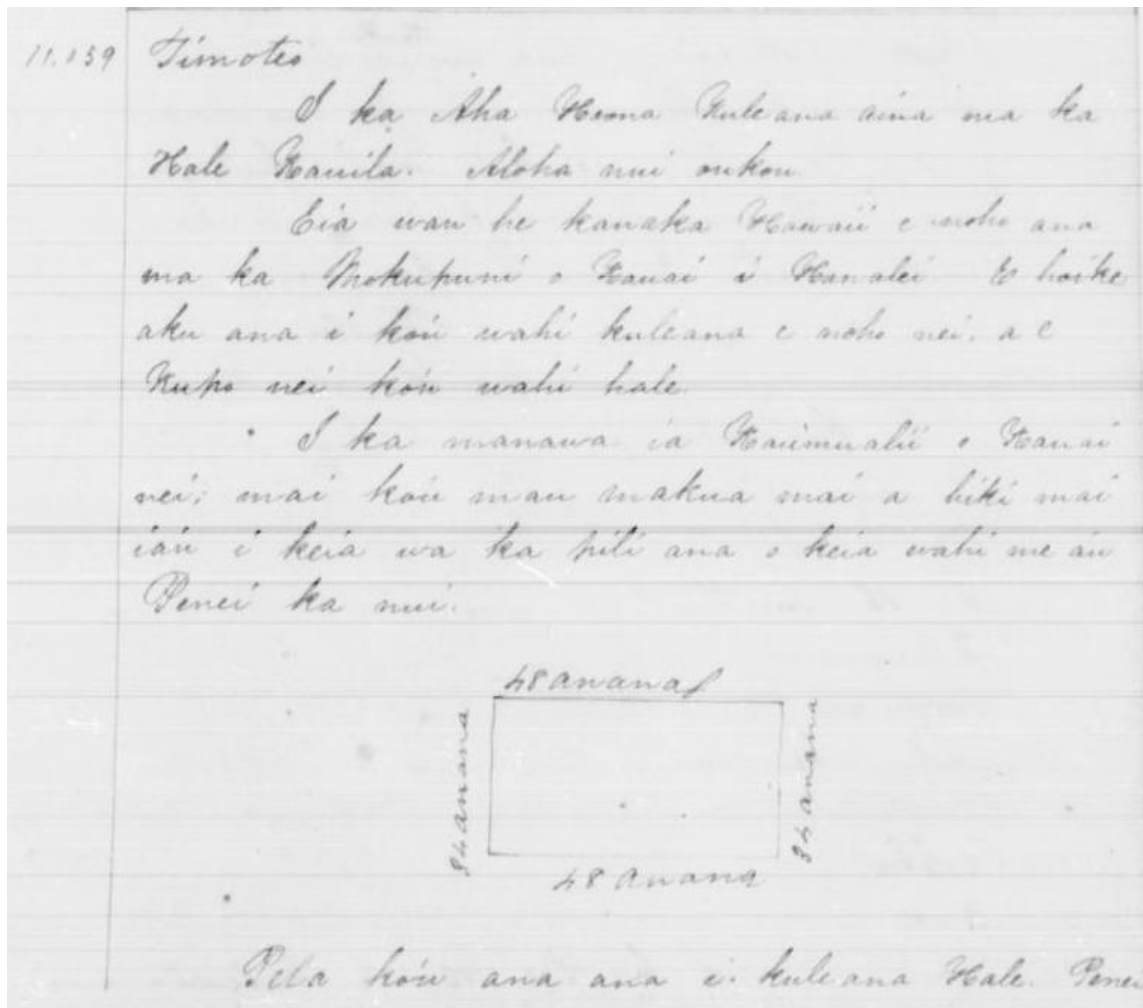 11.139 Timoteo
I ka Aha Hoona Kuleana aina ma ka
Hale Kauila. Aloha nui oukou.
Eia wau he kanaka Hawaii e noho ana
ma ka Mokupuni o Kauai i Hanalei E hoike
aku ana i ko'u wahi kuleana e noho nei. a e
Kupo nei ko'u wahi hale.
I ka manawa ia Kaumualii o Kauai
nei; mai ko'u mau makua mai a hiki mai
ia'u i keia wa ka pili ana o keia wahi me a'u
Penei ka nui.
48 anana
34 anana
34 anana
48 anana
Pela ko'u ana ana i kuleana Hale. Penei